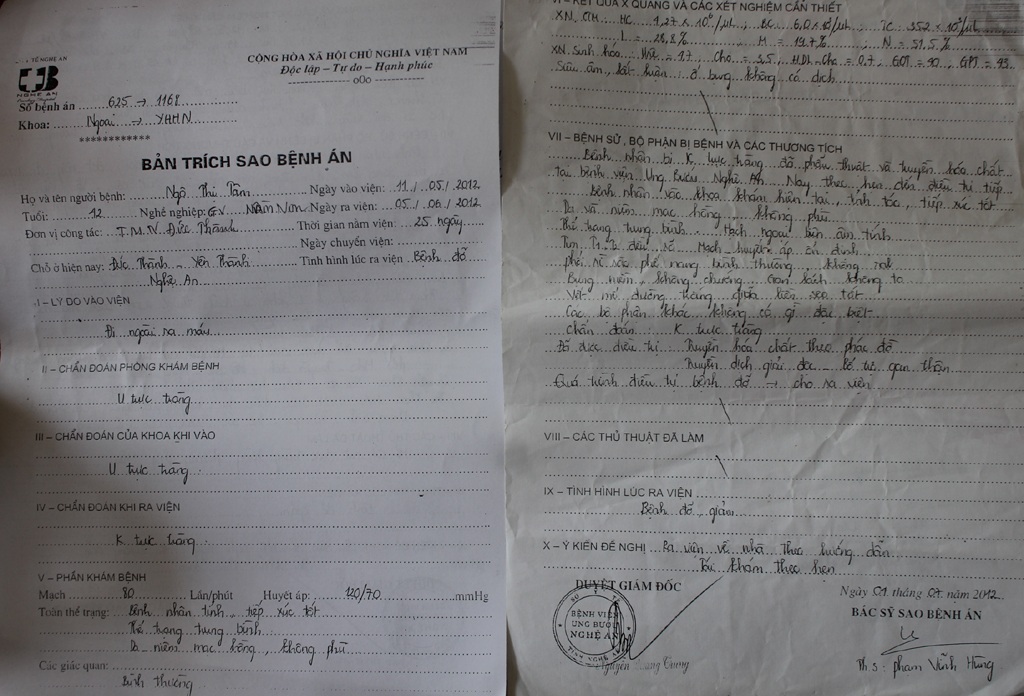 Y TẾ NGHỆ AN
NGHỆ AN
CỘNG HÒA XÃ HỘI CHỦ NGHĨA VIỆT NAM
Độc lập – Tự do – Hạnh phúc
------------ o0o ------------
Số bệnh án 625 → 1168
Khoa: Ngoại → YHHN
************
BẢN TRÍCH SAO BỆNH ÁN
Họ và tên người bệnh: Ngô Thị Tâm Ngày vào viện: 11 / 05 / 2012
Tuổi: 12 Nghề nghiệp: G.v Mầm Non Ngày ra viện: 05 / 06 / 2012
Đơn vị công tác: T.M.N Đức Thành Thời gian nằm viện: 25 ngày
Ngày chuyển viện:
Chỗ ở hiện nay: Đức Thành - Yên Thành Tình hình lúc ra viện Bệnh đỡ
Nghệ An
I – LÝ DO VÀO VIỆN
Đi ngoài ra máu
II – CHẨN ĐOÁN PHÒNG KHÁM BỆNH
U trực tràng
III – CHẨN ĐOÁN CỦA KHOA KHI VÀO
U trực tràng
IV – CHẨN ĐOÁN KHI RA VIỆN
K trực tràng
V – PHẦN KHÁM BỆNH
Mạch 80 Lần/phút Huyết áp: 120/70 mmHg
Toàn thể trạng: Bệnh nhân tỉnh, tiếp xúc tốt
Thể trạng trung bình
Da niêm mạc hồng, không phù
Các giác quan:
Bình thường
VI – KẾT QUẢ X QUANG VÀ CÁC XÉT NGHIỆM CẦN THIẾT
XN. CTM HC 1,27 x 10⁶/µl; BC 6,0 x 10³/µl; TC 352 x 10³/µl
L = 28,8% M = 19,7% N = 51,5%
XN. Sinh hóa: = 4.7 Cho = 3,5, HDL-Cho = 0.7, GOT = 40, GPT = 43
Siêu âm, ổ bụng không có dịch
VII – BỆNH SỬ, BỘ PHẬN BỊ BỆNH VÀ CÁC THƯƠNG TÍCH
Bệnh nhân bị K trực tràng đã phẫu thuật và truyền hóa chất
Tại bệnh viện Ung Bướu Nghệ An. Nay theo hẹn đến điều trị tiếp
Bệnh nhân vào khoa khám hiện tại, tỉnh táo, tiếp xúc tốt
Da và niêm mạc hồng, không phù
Thể trạng trung bình. Hạch ngoại biên âm tính
Tim T1 T2 đều rõ. Mạch huyết áp ổn định
Phổi rì rào phế nang bình thường, không ral
Bụng mềm, không chướng, Gan lách không to
Vết mổ đường trắng giữa liền sẹo tốt
Các bộ phận khác không có gì đặc biệt
Chẩn đoán: K trực tràng
Đã được điều trị: Truyền hóa chất theo phác đồ
Truyền dịch giải độc - bổ trợ gan thận
Quá trình điều trị bệnh đỡ → cho ra viện
VIII – CÁC THỦ THUẬT ĐÃ LÀM
IX – TÌNH HÌNH LÚC RA VIỆN
Bệnh đỡ, giảm
X – Ý KIẾN ĐỀ NGHỊ Ra viện về nhà theo hướng dẫn
Tái khám theo hẹn
DUYỆT GIÁM ĐỐC
BỆNH VIỆN
UNG BƯỚU
NGHỆ AN
TỈNH NGHỆ AN
Ngày năm 2012
BÁC SỸ SAO BỆNH ÁN
Th.s: Phạm Vĩnh Hùng